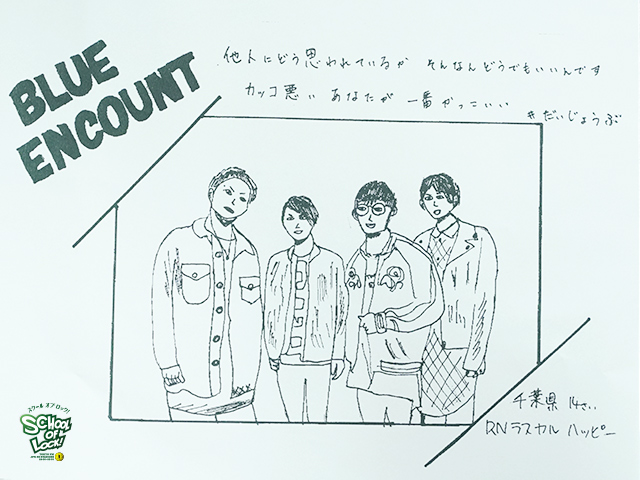 BLUE
ENCOUNT
他人にどう思われているか そんなんどうでもいいんです
カッコ悪い あなたが 一番かっこいい
#だいじょうぶ
千葉県 14さい
RN ラスカル ハッピー
スクール オブ ロック!
SCHOOL
OF
LOCK!